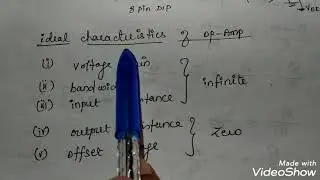 8 Pin DIP
ideal characteristics of op-Amp
(i) voltage
(ii) bandwi
(iii) input
infinite
(iv) output
(v) offset
Zero
Made with
VideoShow